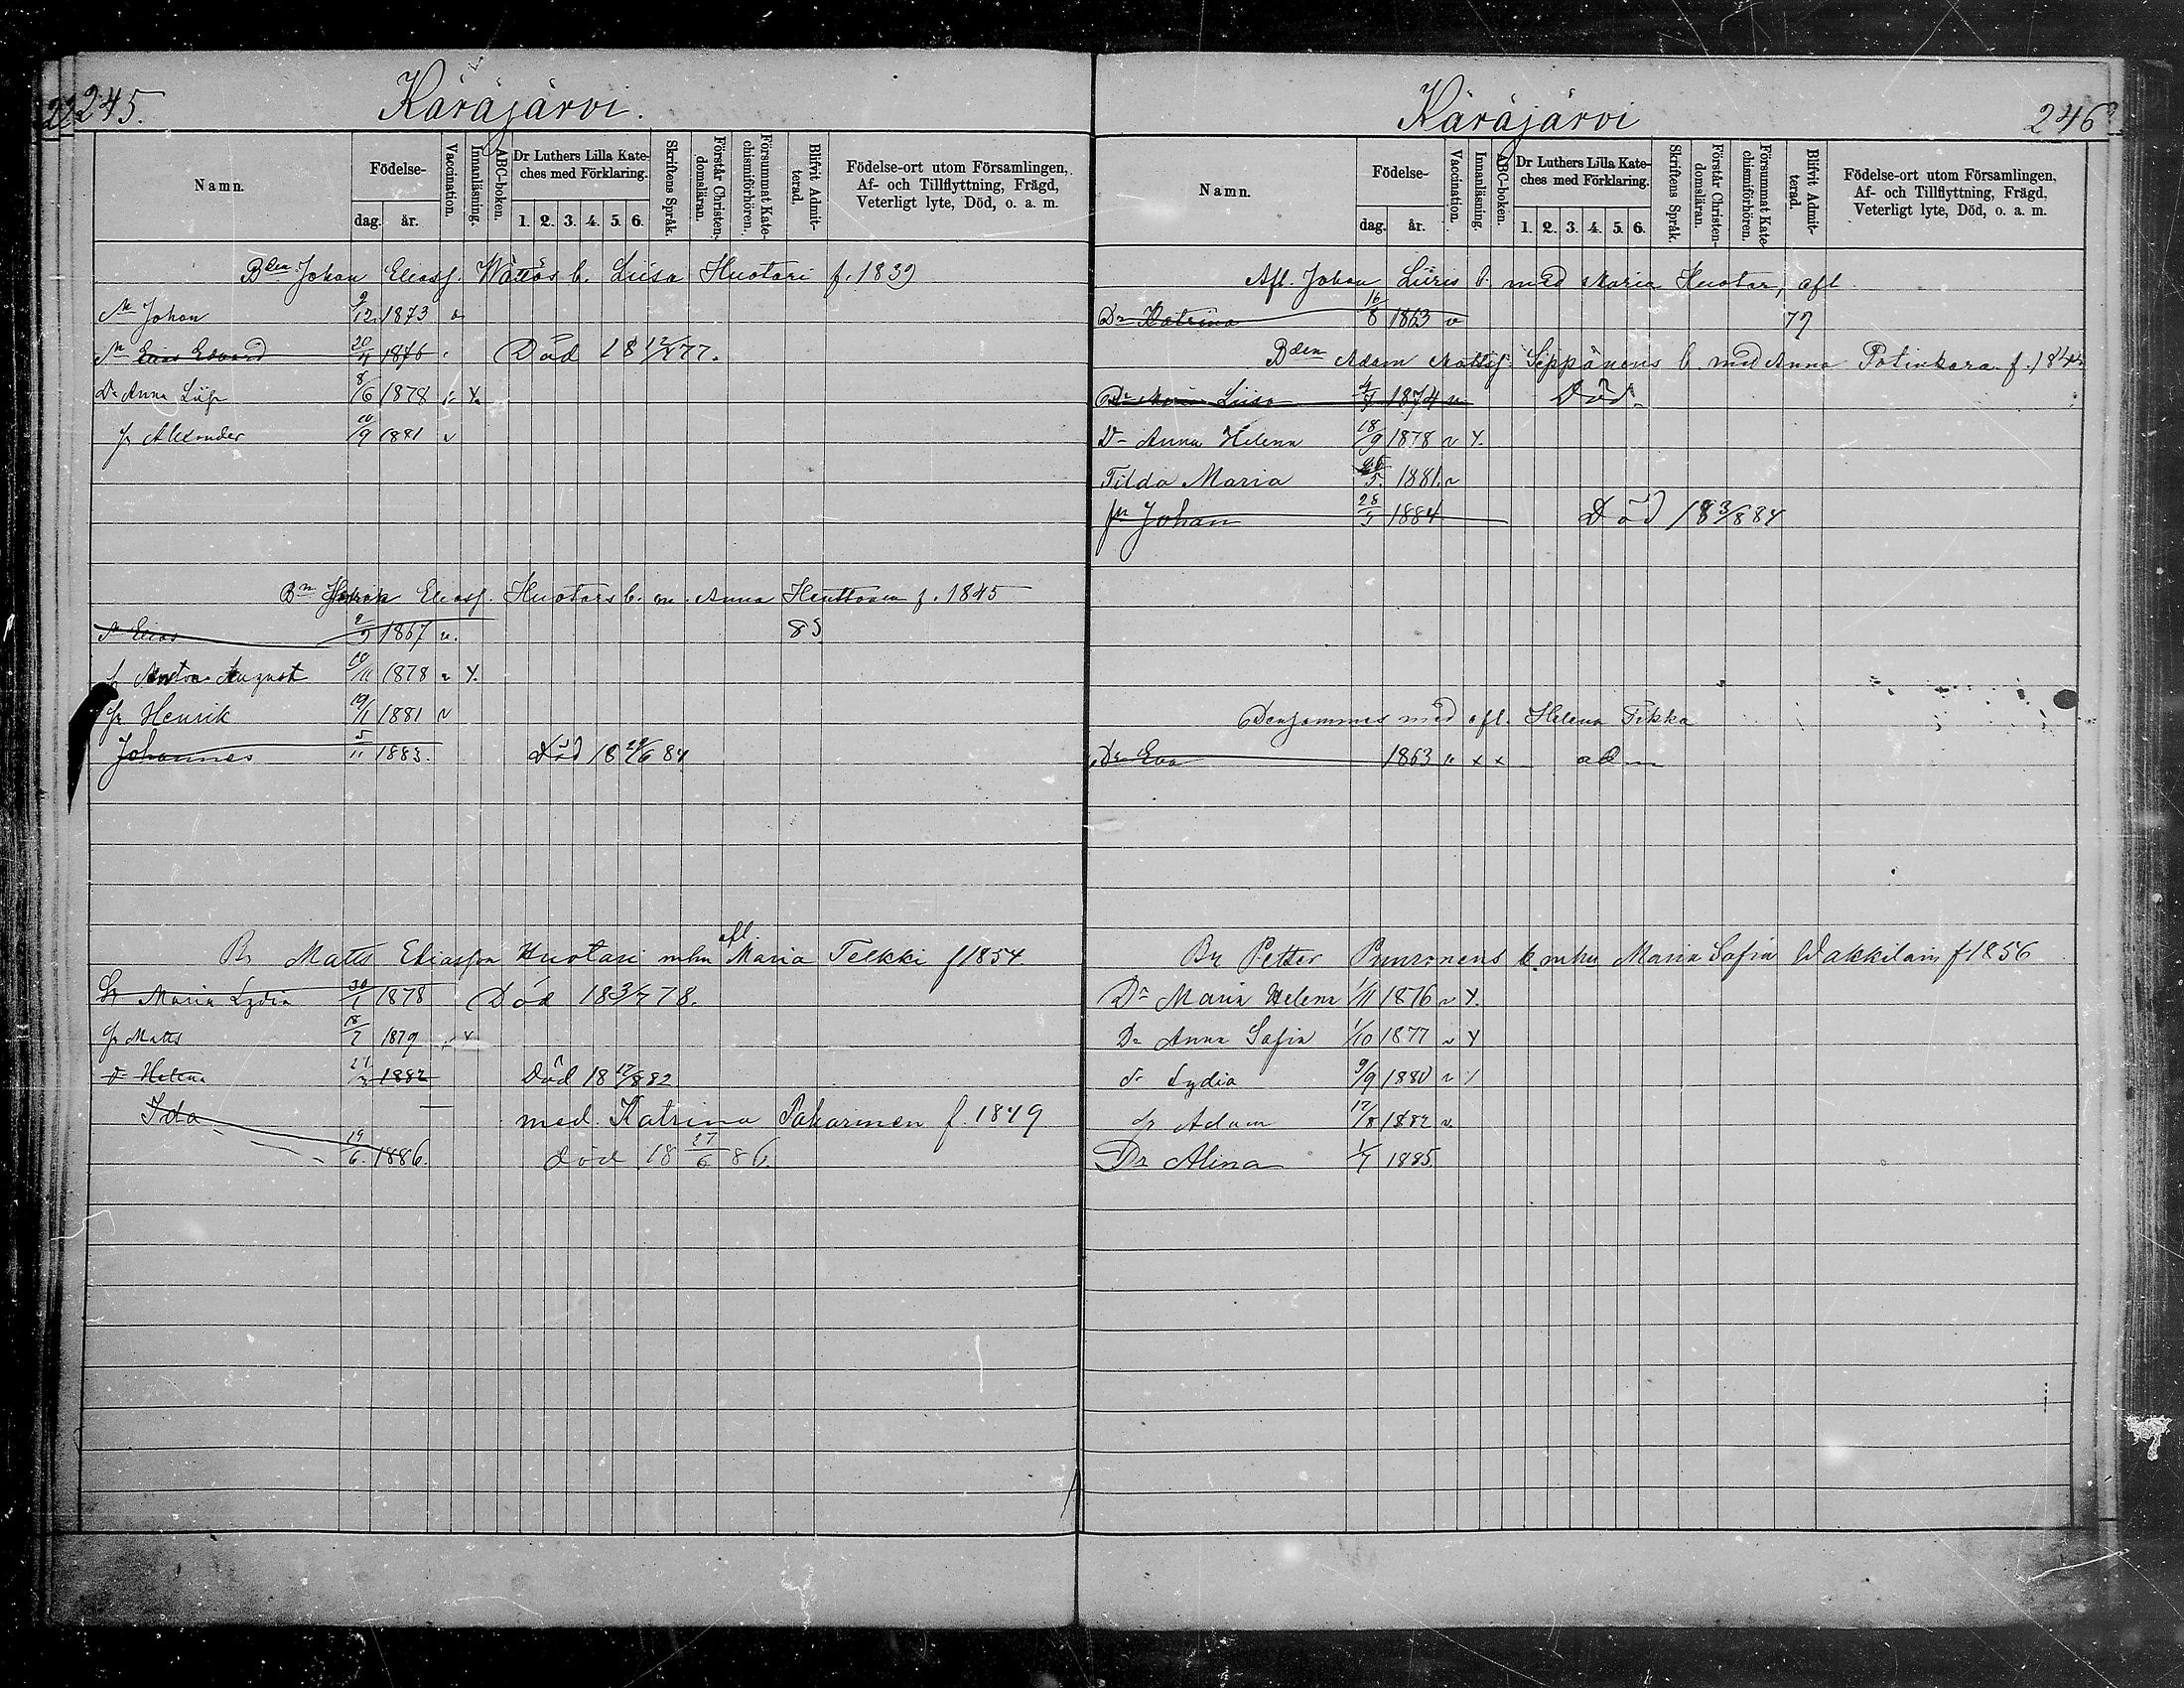 245.
Käräjärvi.
Namn.
Födelse-
dag.
år.
Vaccination.
Innanläsning.
ABC-boken.
Dr Luthers Lilla Kate-
ches med Förklaring.
1. 2. 3. 4. 5. 6.
Skriftens Språk.
Förstår Christen-
domsläran.
Försummat Kate-
chismiförhören.
Blifvit Admit-
terad.
Födelse-ort utom Församlingen,
Af- och Tillflyttning, Frägd,
Veterligt lyte, Död, o. a. m.
Bden Johan Eliass. b. Liisa Huotari f. 1839
Johan 9/12 1873
Elias Edvard 20/4 1876 Död 18 12/4 77.
Dr Anna 8/6 1878
Alexander 10/9 1881
Bn Henrik Eliass. Huotars b. m. Anna Huuttonen f. 1845
Elias 2/9 1867 85
Anton August 10/11 1878
Henrik 19/1 1881
Johannes 5/11 1883. Död 18 29/6 84
Br Matts Eliasson Huotari mhu afl. Maria Telkki f 1854
Maria Lydia 30/1 1878 Död 18 3/7 78.
Matts 18/7 1879
Helena 27/3 1882 Död 18 12/8 82
Ida med Katrina Pakarinen f. 1849
19/6. 1886. död 18 27/6 86.
Käräjärvi
246
Namn.
Födelse-
dag.
år.
Vaccination.
Innanläsning.
ABC-boken.
Dr Luthers Lilla Kate-
ches med Förklaring.
1. 2. 3. 4. 5. 6.
Skriftens Språk.
Förstår Christen-
domsläran.
Försummat Kate-
chismiförhören.
Blifvit Admit-
terad.
Födelse-ort utom Församlingen,
Af- och Tillflyttning, Frägd,
Veterligt lyte, Död, o. a. m.
Afl. Johan b. med Maria Huotar, afl
Dr Katrina 16/8 1863 v 77
Bden Adam Mattss. Seppänens b. med Anna Potinkara f. 1842
Maria Liisa 1874 Död
Dr Anna Helena 18/9 1878 v
Tilda Maria 1881. v
Johan 28/5 1884 Död 18 3/8 84
Densammes med afl. Helena Tikka
Dr Eva 1863 x x ad
Br Petter Punronens b. mhu Maria Sofia Wakkilain f 1856
Dr Maria Helena 1/11 1876 v
Dr Anna Sofia 1/10 1877 v
Lydia 9/9 1880 v
Adam 17/8 1882 v
Dr Alina 1/7 1885